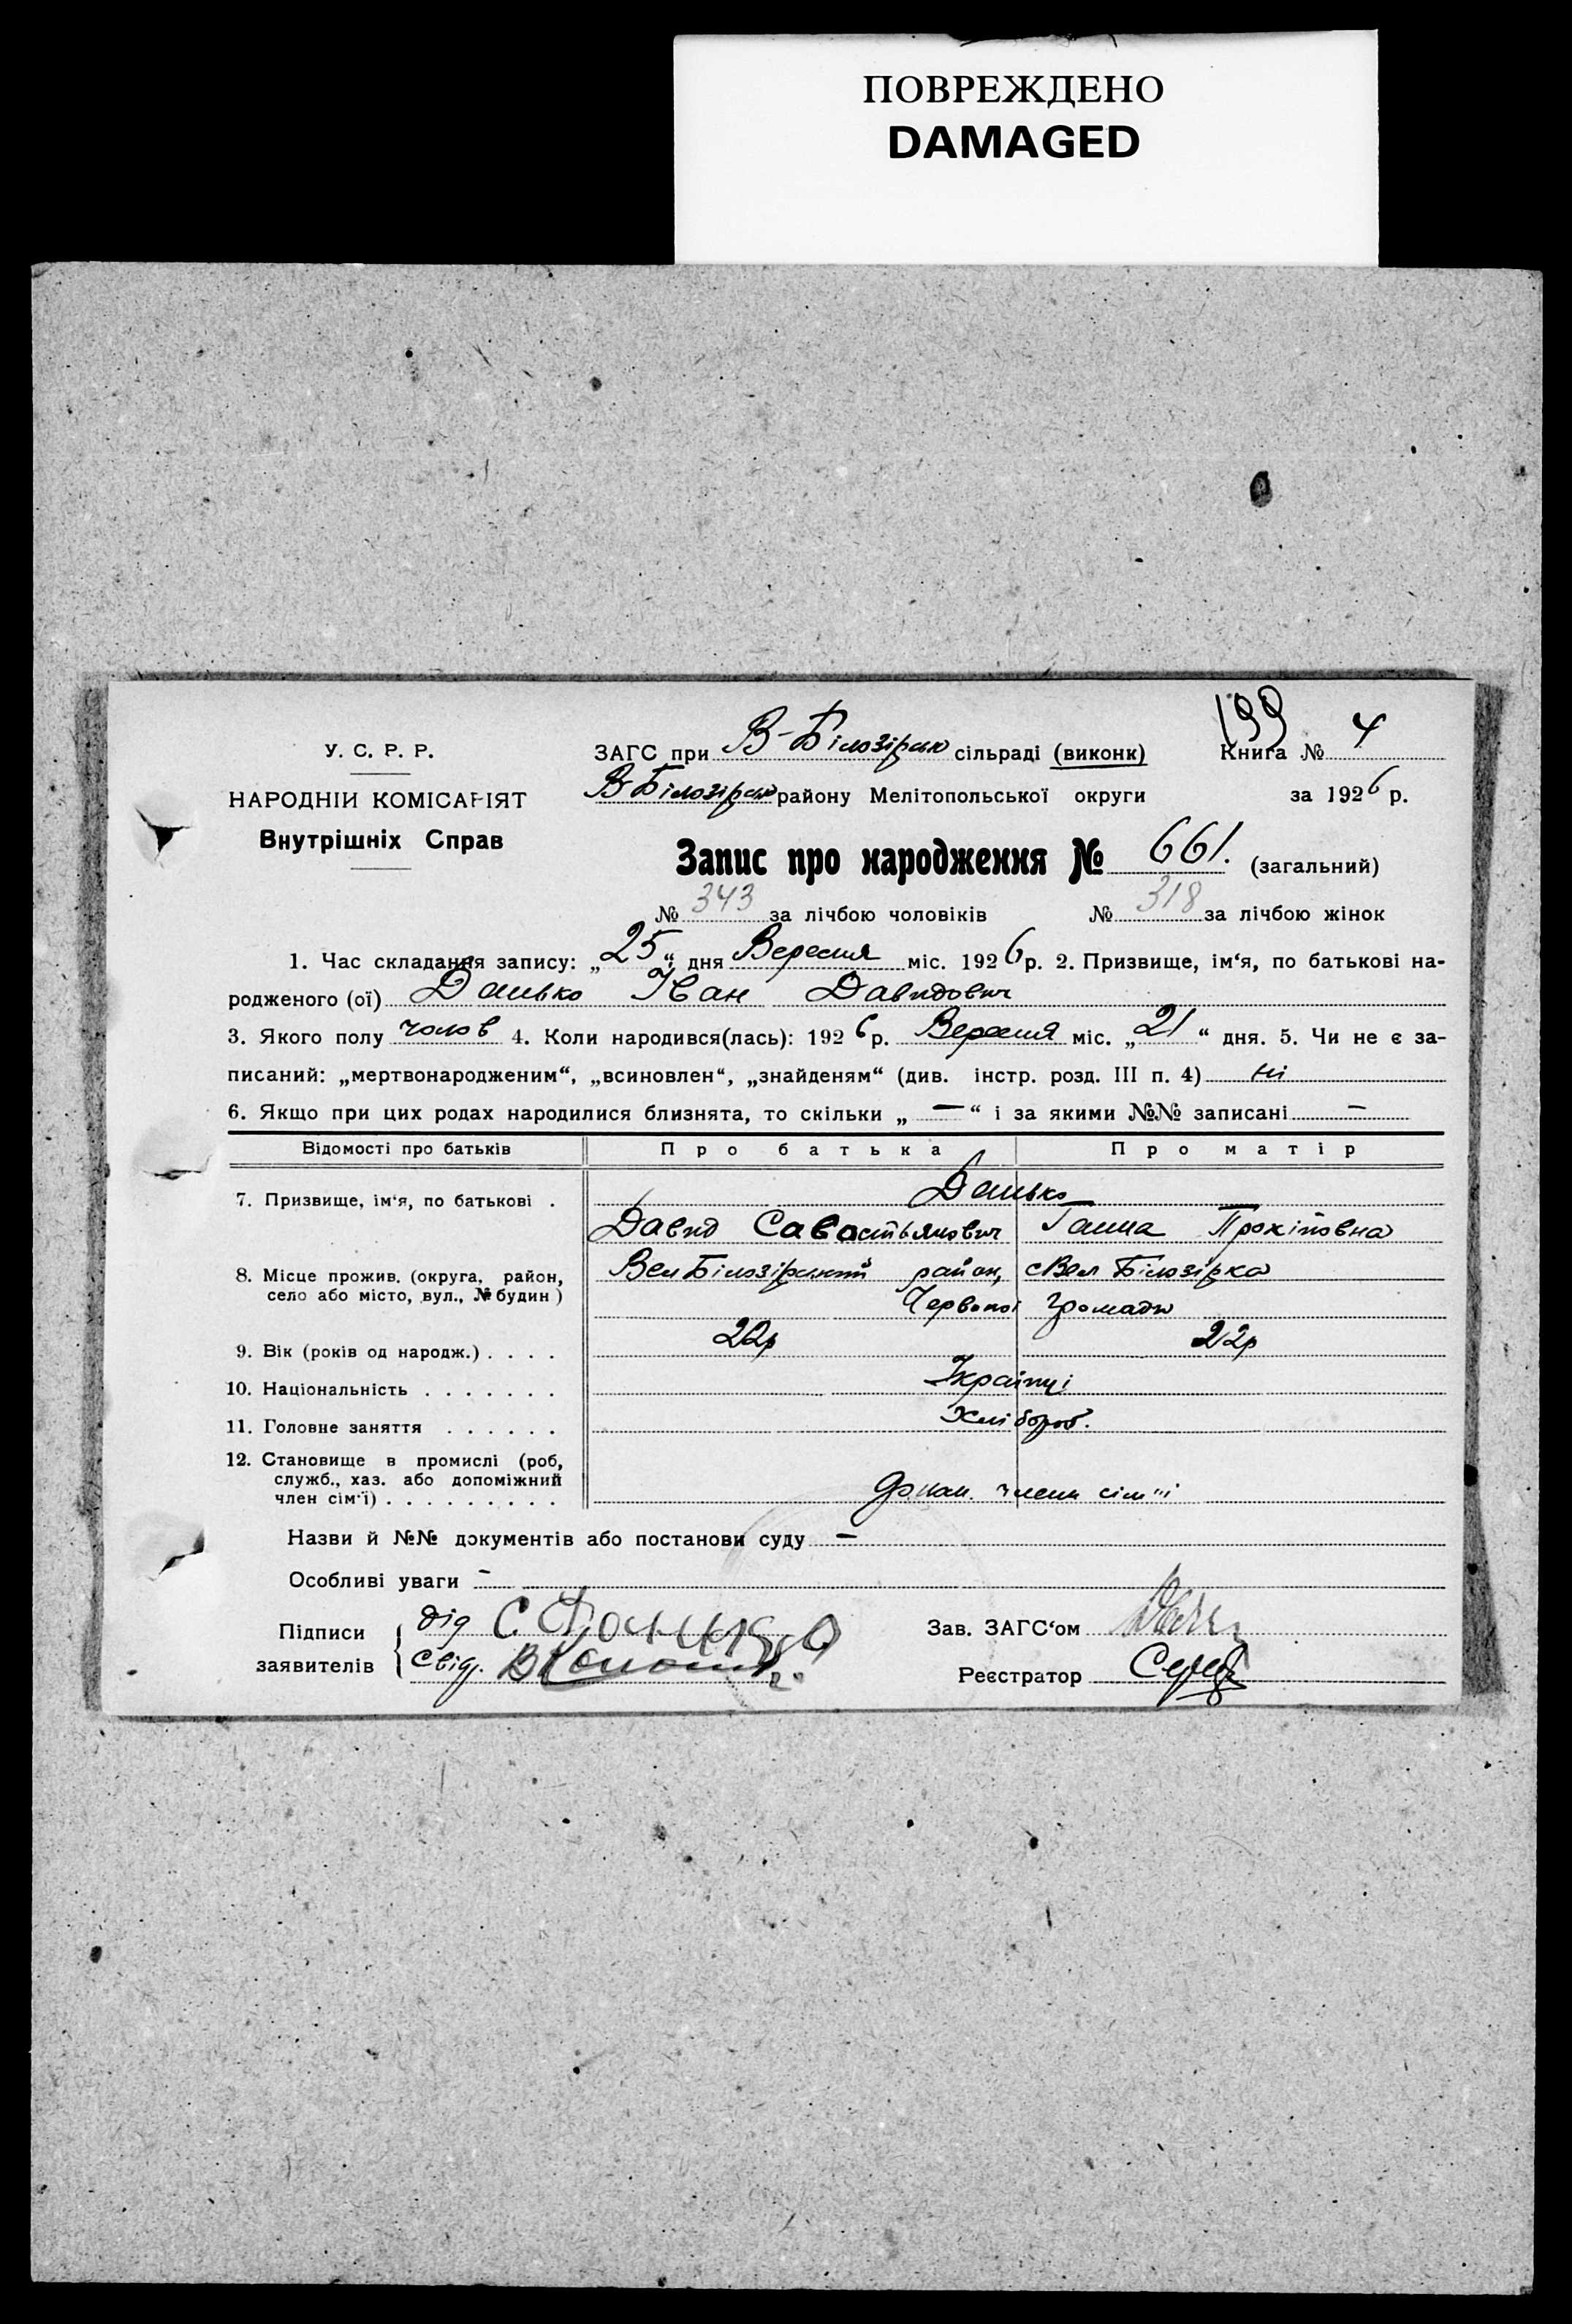 ПОВРЕЖДЕНО
DAMAGED
199
У. С. Р. Р.
НАРОДНІЙ КОМІСАРІЯТ
Внутрішніх Справ
ЗАГС при В-Білозірськ сільраді (виконк) Книга № 4
В-Білозірськ району Мелітопольської округи за 1926 р.
Запис про народження № 661. (загальний)
№ 343 за лічбою чоловіків № 318 за лічбою жінок
1. Час складання запису: „25“ дня Вересня міс. 1926 р. 2. Призвище, ім‘я, по батькові на-
родженого (ої) Данько Іван Давидович
3. Якого полу чолов 4. Коли народився(лась): 1926 р. Вересня міс. „21“ дня. 5. Чи не є за-
писаний: „мертвонародженим“, „всиновлен“, „знайденям“ (див. інстр. розд. III п. 4) ні
6. Якщо при цих родах народилися близнята, то скільки „ — “ і за якими №№ записані —
Відомості про батьків Про батька Про матір
7. Призвище, ім‘я, по батькові . Данько
Давид Савостьянович Ганна Прокіповна
8. Місце прожив. (округа, район, село або місто, вул., № будин) Вел Білозірський район, с Вел Білозірка
Червоної громади
9. Вік (років од народж.) . . . . 22р 22р
10. Національність . . . . . . . Українці
11. Головне заняття . . . . . . Хлібороб.
12. Становище в промислі (роб,
служб., хаз. або допоміжний
член сім‘ї) . . . . . . . . . члени сім'ї
Назви й №№ документів або постанови суду —
Особливі уваги -
Підписи заявителів дід С. Данько
свід. В
Зав. ЗАГС‘ом
Реєстратор